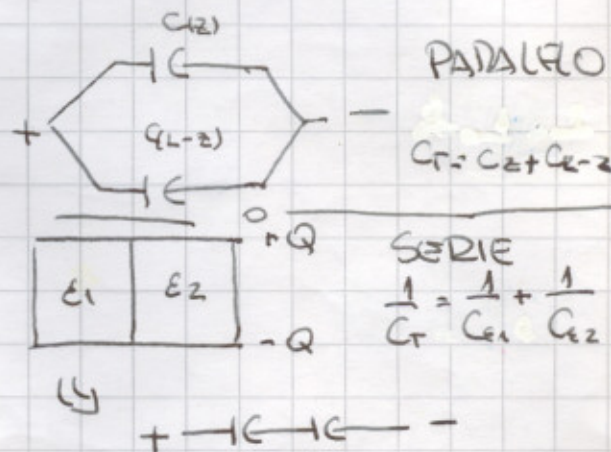 C(z)
PARALELO
+ -
C(L-z)
C_T = C_z + C_{L-z}
o + Q
SERIE
ε1 ε2
1/C_T = 1/C_{ε1} + 1/C_{ε2}
- Q
+ -